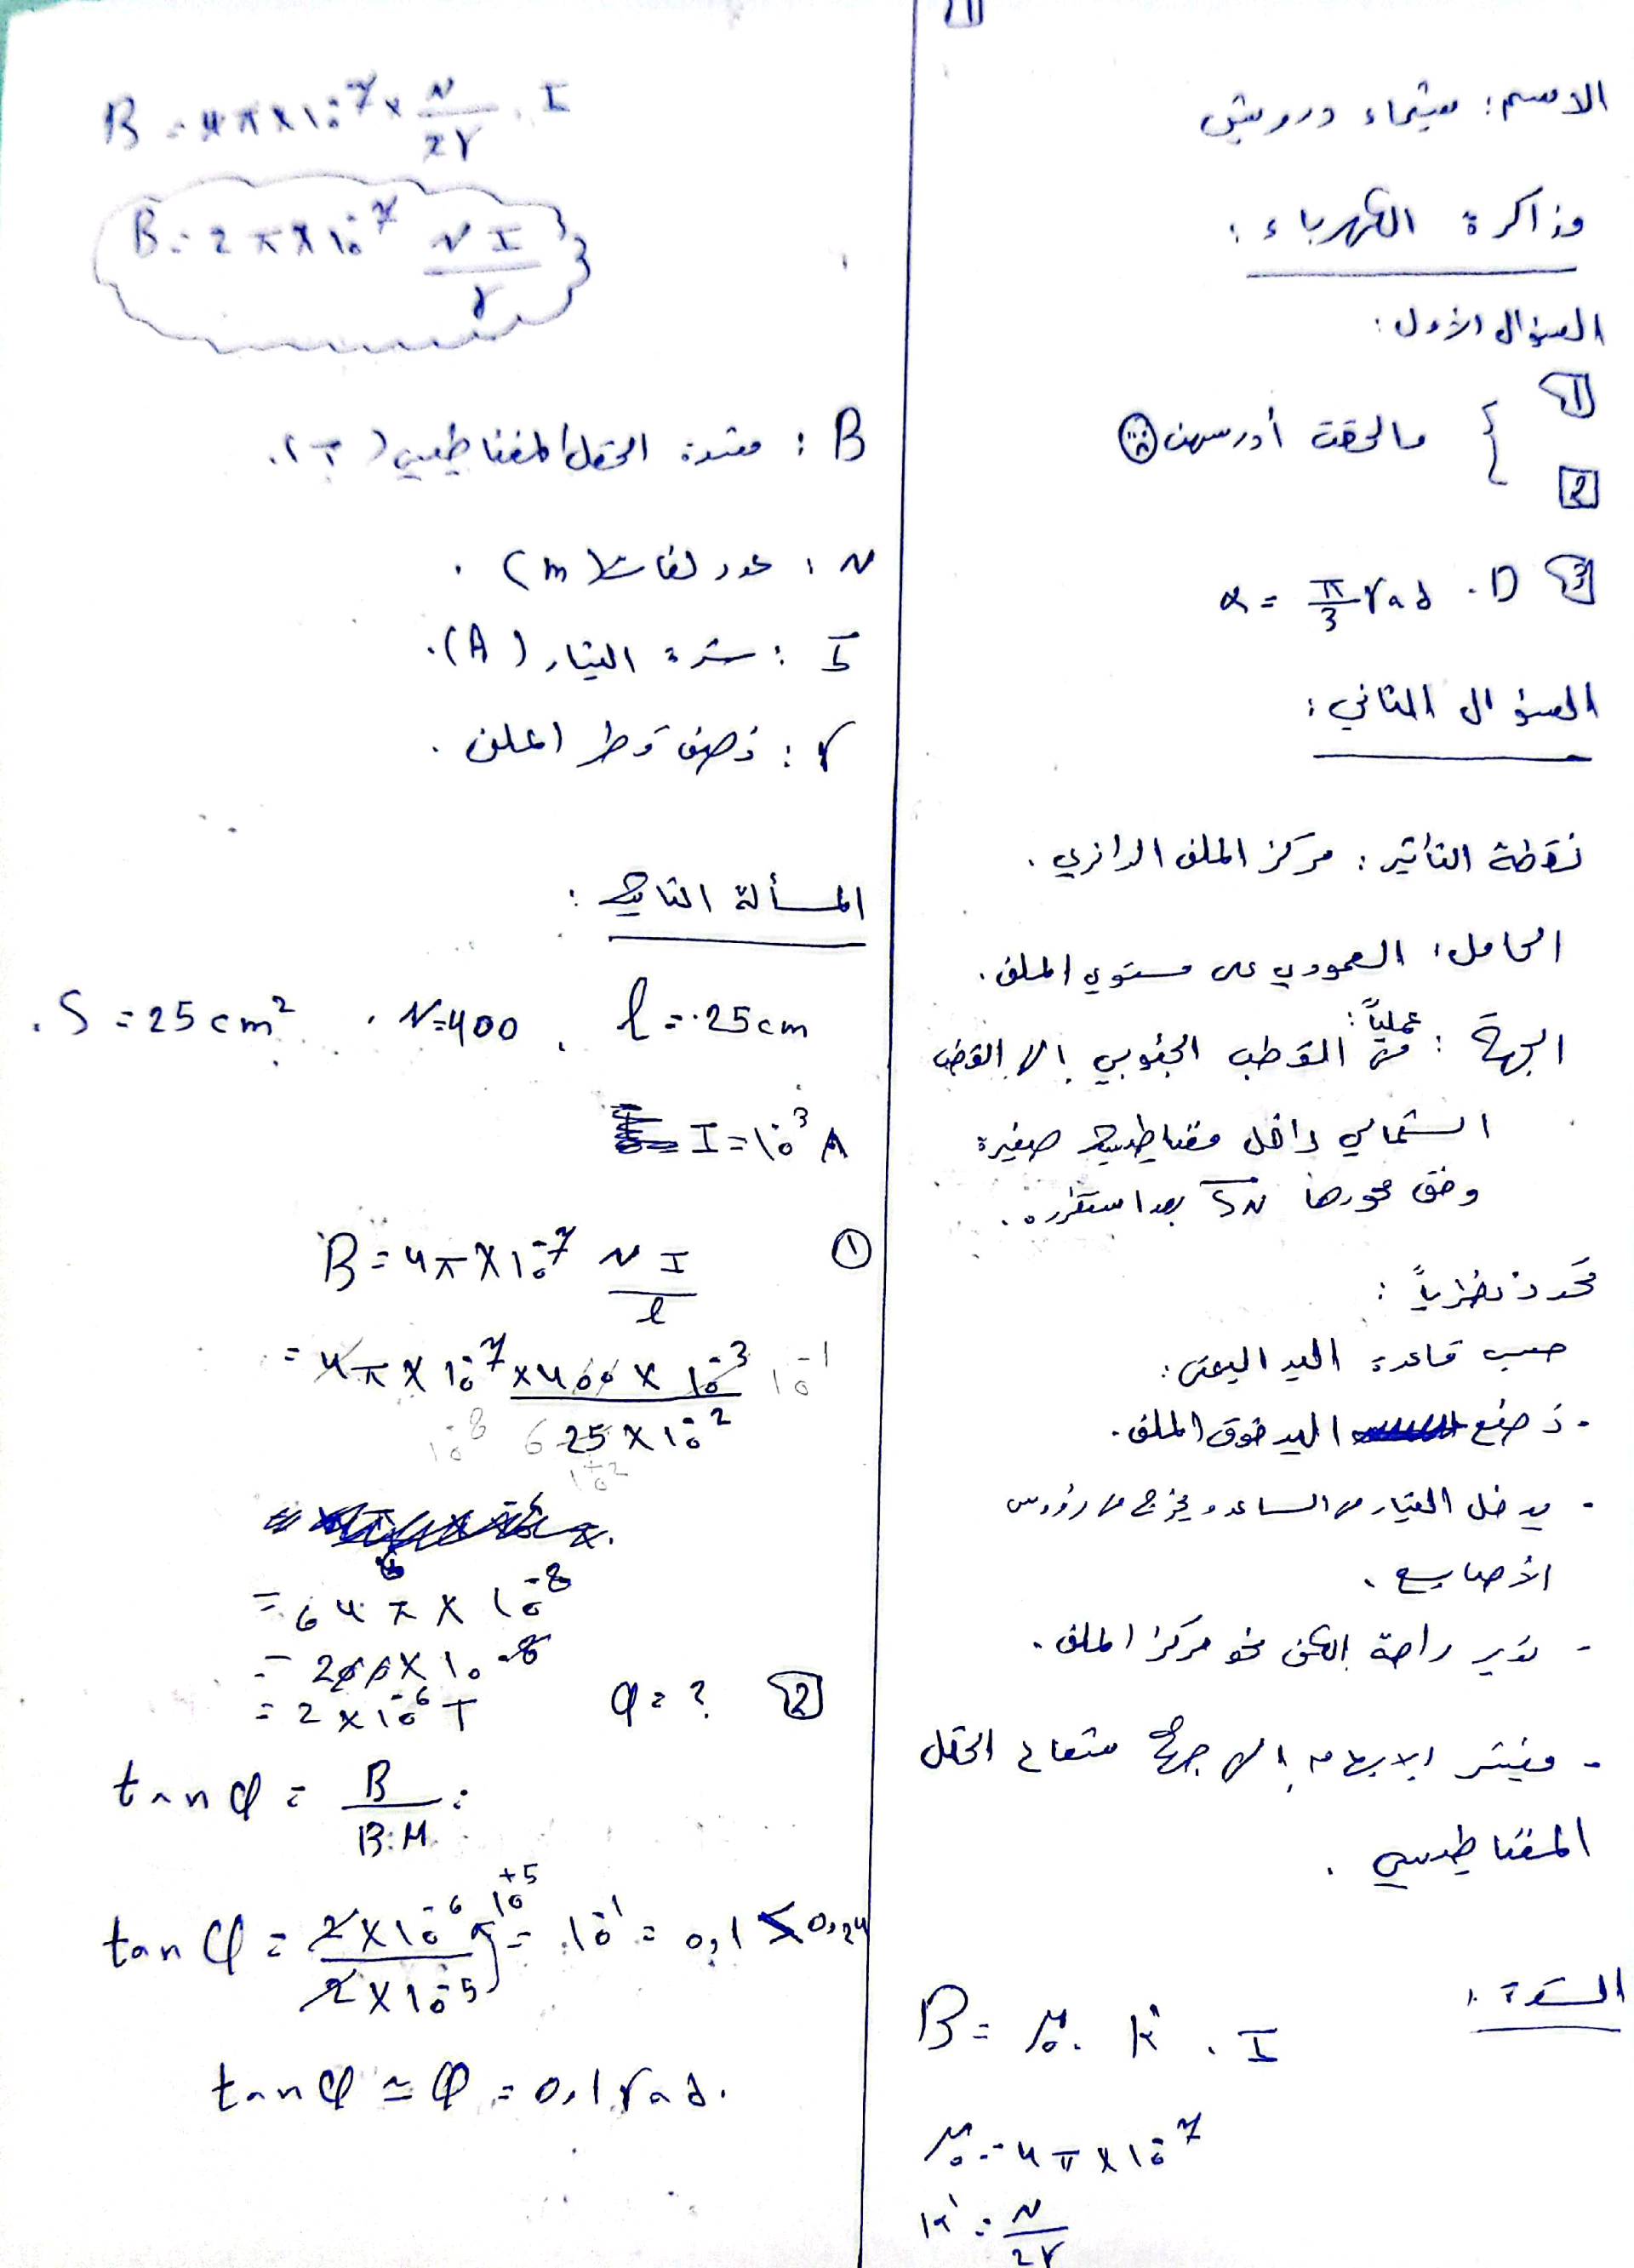 1
الاسم: شيماء درويش
مذاكرة الكهرباء:
السؤال الأول:
1
2
} مالحقت أدرسهن
3 D. α = π/3 rad
السؤال الثاني:
نقطة التأثير: مركز الملف الدائري.
الحامل: العمودي على مستوي الملف.
الجهة: عملياً:
من القطب الجنوبي إلى القطب
الشمالي داخل مغناطيسية صغيرة
وفق محورها SN بعد استقراره.
تحدد نظرياً:
حسب قاعدة اليد اليمنى:
- نضع اليد فوق الملف.
- يدخل التيار من الساعد ويخرج من رؤوس
الأصابع.
- ندير راحة الكف نحو مركز الملف.
- فيشير الابهام إلى جهة شعاع الحقل
المغناطيسي.
الشدة:
B = μ₀. k'. I
μ₀ = 4π×10⁻⁷
k' = N/2r
B = 4π×10⁻⁷ × N/2r . I
B = 2π×10⁻⁷ NI/r
B: شدة الحقل المغناطيسي (T).
N: عدد لفات (m).
I: شدة التيار (A).
r: نصف قطر الملف.
المسألة التانية:
l = 25cm , N=400 , S = 25cm².
I = 10⁻³ A
① B = 4π×10⁻⁷ NI/l
= 4π×10⁻⁷ × 400 × 10⁻³ / 25×10⁻² 10⁻¹
10⁻⁸ 6 10⁺²
= 64π × 10⁻⁸
= 200×10⁻⁸
= 2×10⁻⁶ T
2 φ = ?
tanφ = B/B:H
tanφ = 2×10⁻⁶/2×10⁻⁵ 10⁺⁵ = 10⁻¹ = 0,1 < 0,24
tanφ ≃ φ = 0,1 rad.